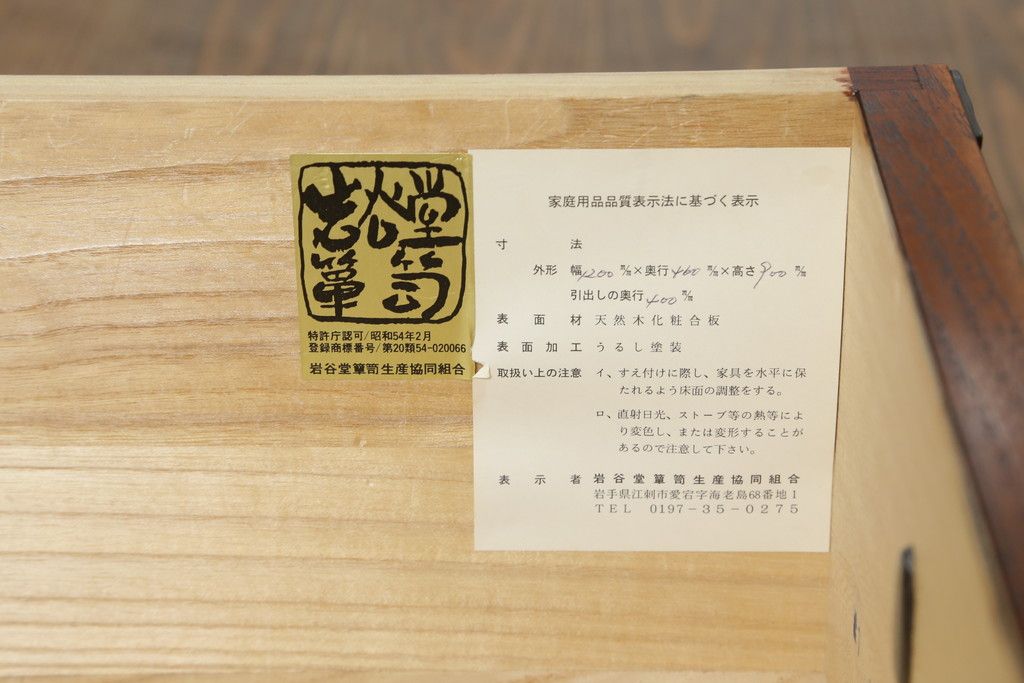 岩谷堂
簞笥
特許庁認可/昭和54年2月
登録商標番号/第20類54-020066
岩谷堂簞笥生産協同組合
家庭用品品質表示法に基づく表示
寸法
外形 幅1200m/m×奥行460m/m×高さ900m/m
引出しの奥行400m/m
表面材 天然木化粧合板
表面加工 うるし塗装
取扱い上の注意 イ、すえ付けに際し、家具を水平に保
たれるよう床面の調整をする。
ロ、直射日光、ストーブ等の熱等によ
り変色し、または変形することが
あるので注意して下さい。
表示者 岩谷堂簞笥生産協同組合
岩手県江刺市愛宕字海老島68番地1
TEL 0197-35-0275